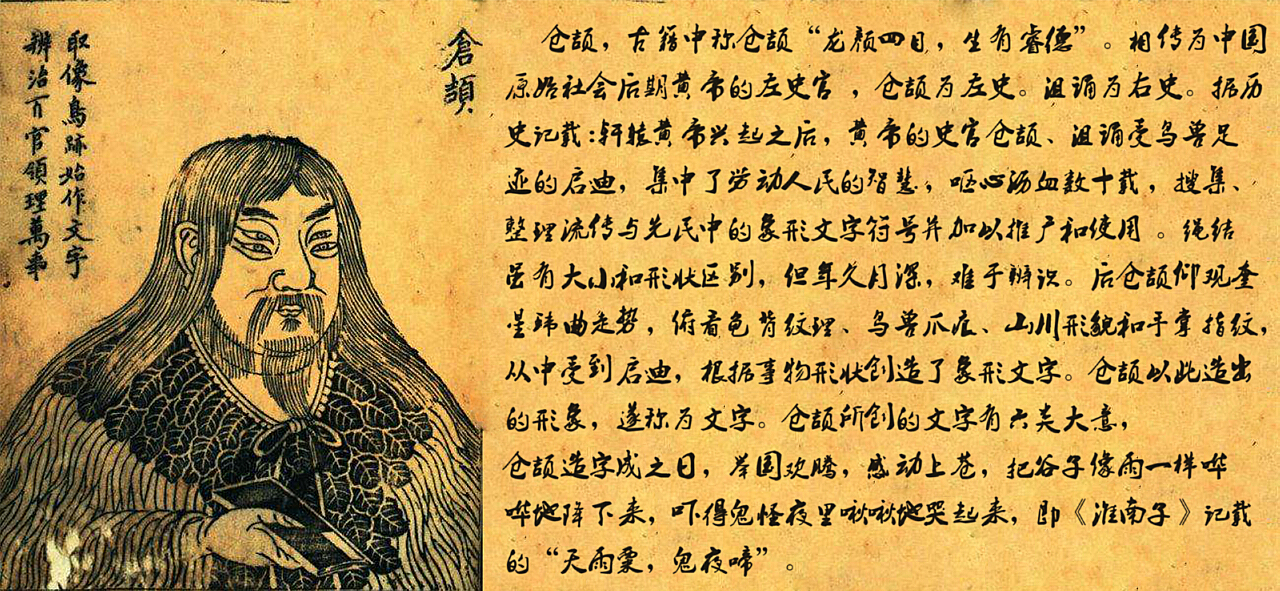 倉頡
取像鳥跡始作文字
辨治百官領理萬事
仓颉，古籍中称仓颉“龙颜四目，生有睿德”。相传为中国
原始社会后期黄帝的左史官，仓颉为左史。沮诵为右史。据历
史记载：轩辕黄帝兴起之后，黄帝的史官仓颉、沮诵受鸟兽足
迹的启迪，集中了劳动人民的智慧，呕心沥血数十载，搜集、
整理流传与先民中的象形文字符号并加以推广和使用。绳结
虽有大小和形状区别，但年久月深，难于辨识。后仓颉仰观奎
星环曲走势，俯看龟背纹理、鸟兽爪痕、山川形貌和手掌指纹，
从中受到启迪，根据事物形状创造了象形文字。仓颉以此造出
的形象，遂称为文字。仓颉所创的文字有六类大意，
仓颉造字成之日，举国欢腾，感动上苍，把谷子像雨一样哗
哗地降下来，吓得鬼怪夜里啾啾地哭起来，即《淮南子》记载
的“天雨粟，鬼夜啼”。